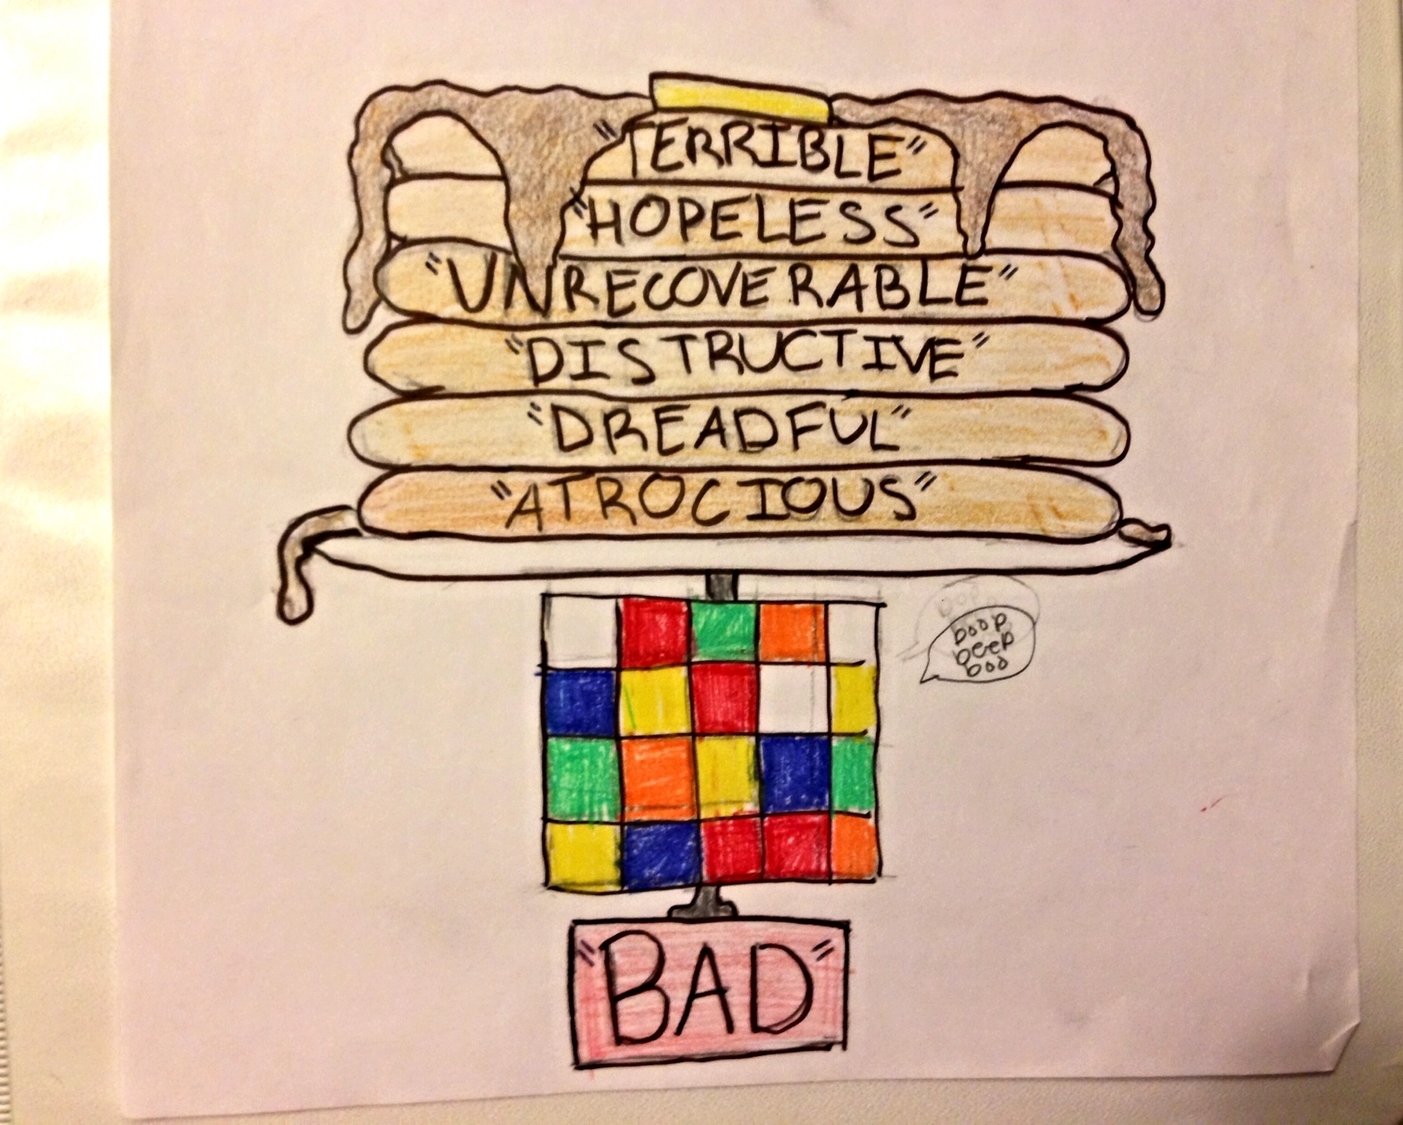 "TERRIBLE"
"HOPELESS"
"UNRECOVERABLE"
"DISTRUCTIVE"
"DREADFUL"
"ATROCIOUS"
bop
boop
beep
boo
"BAD"